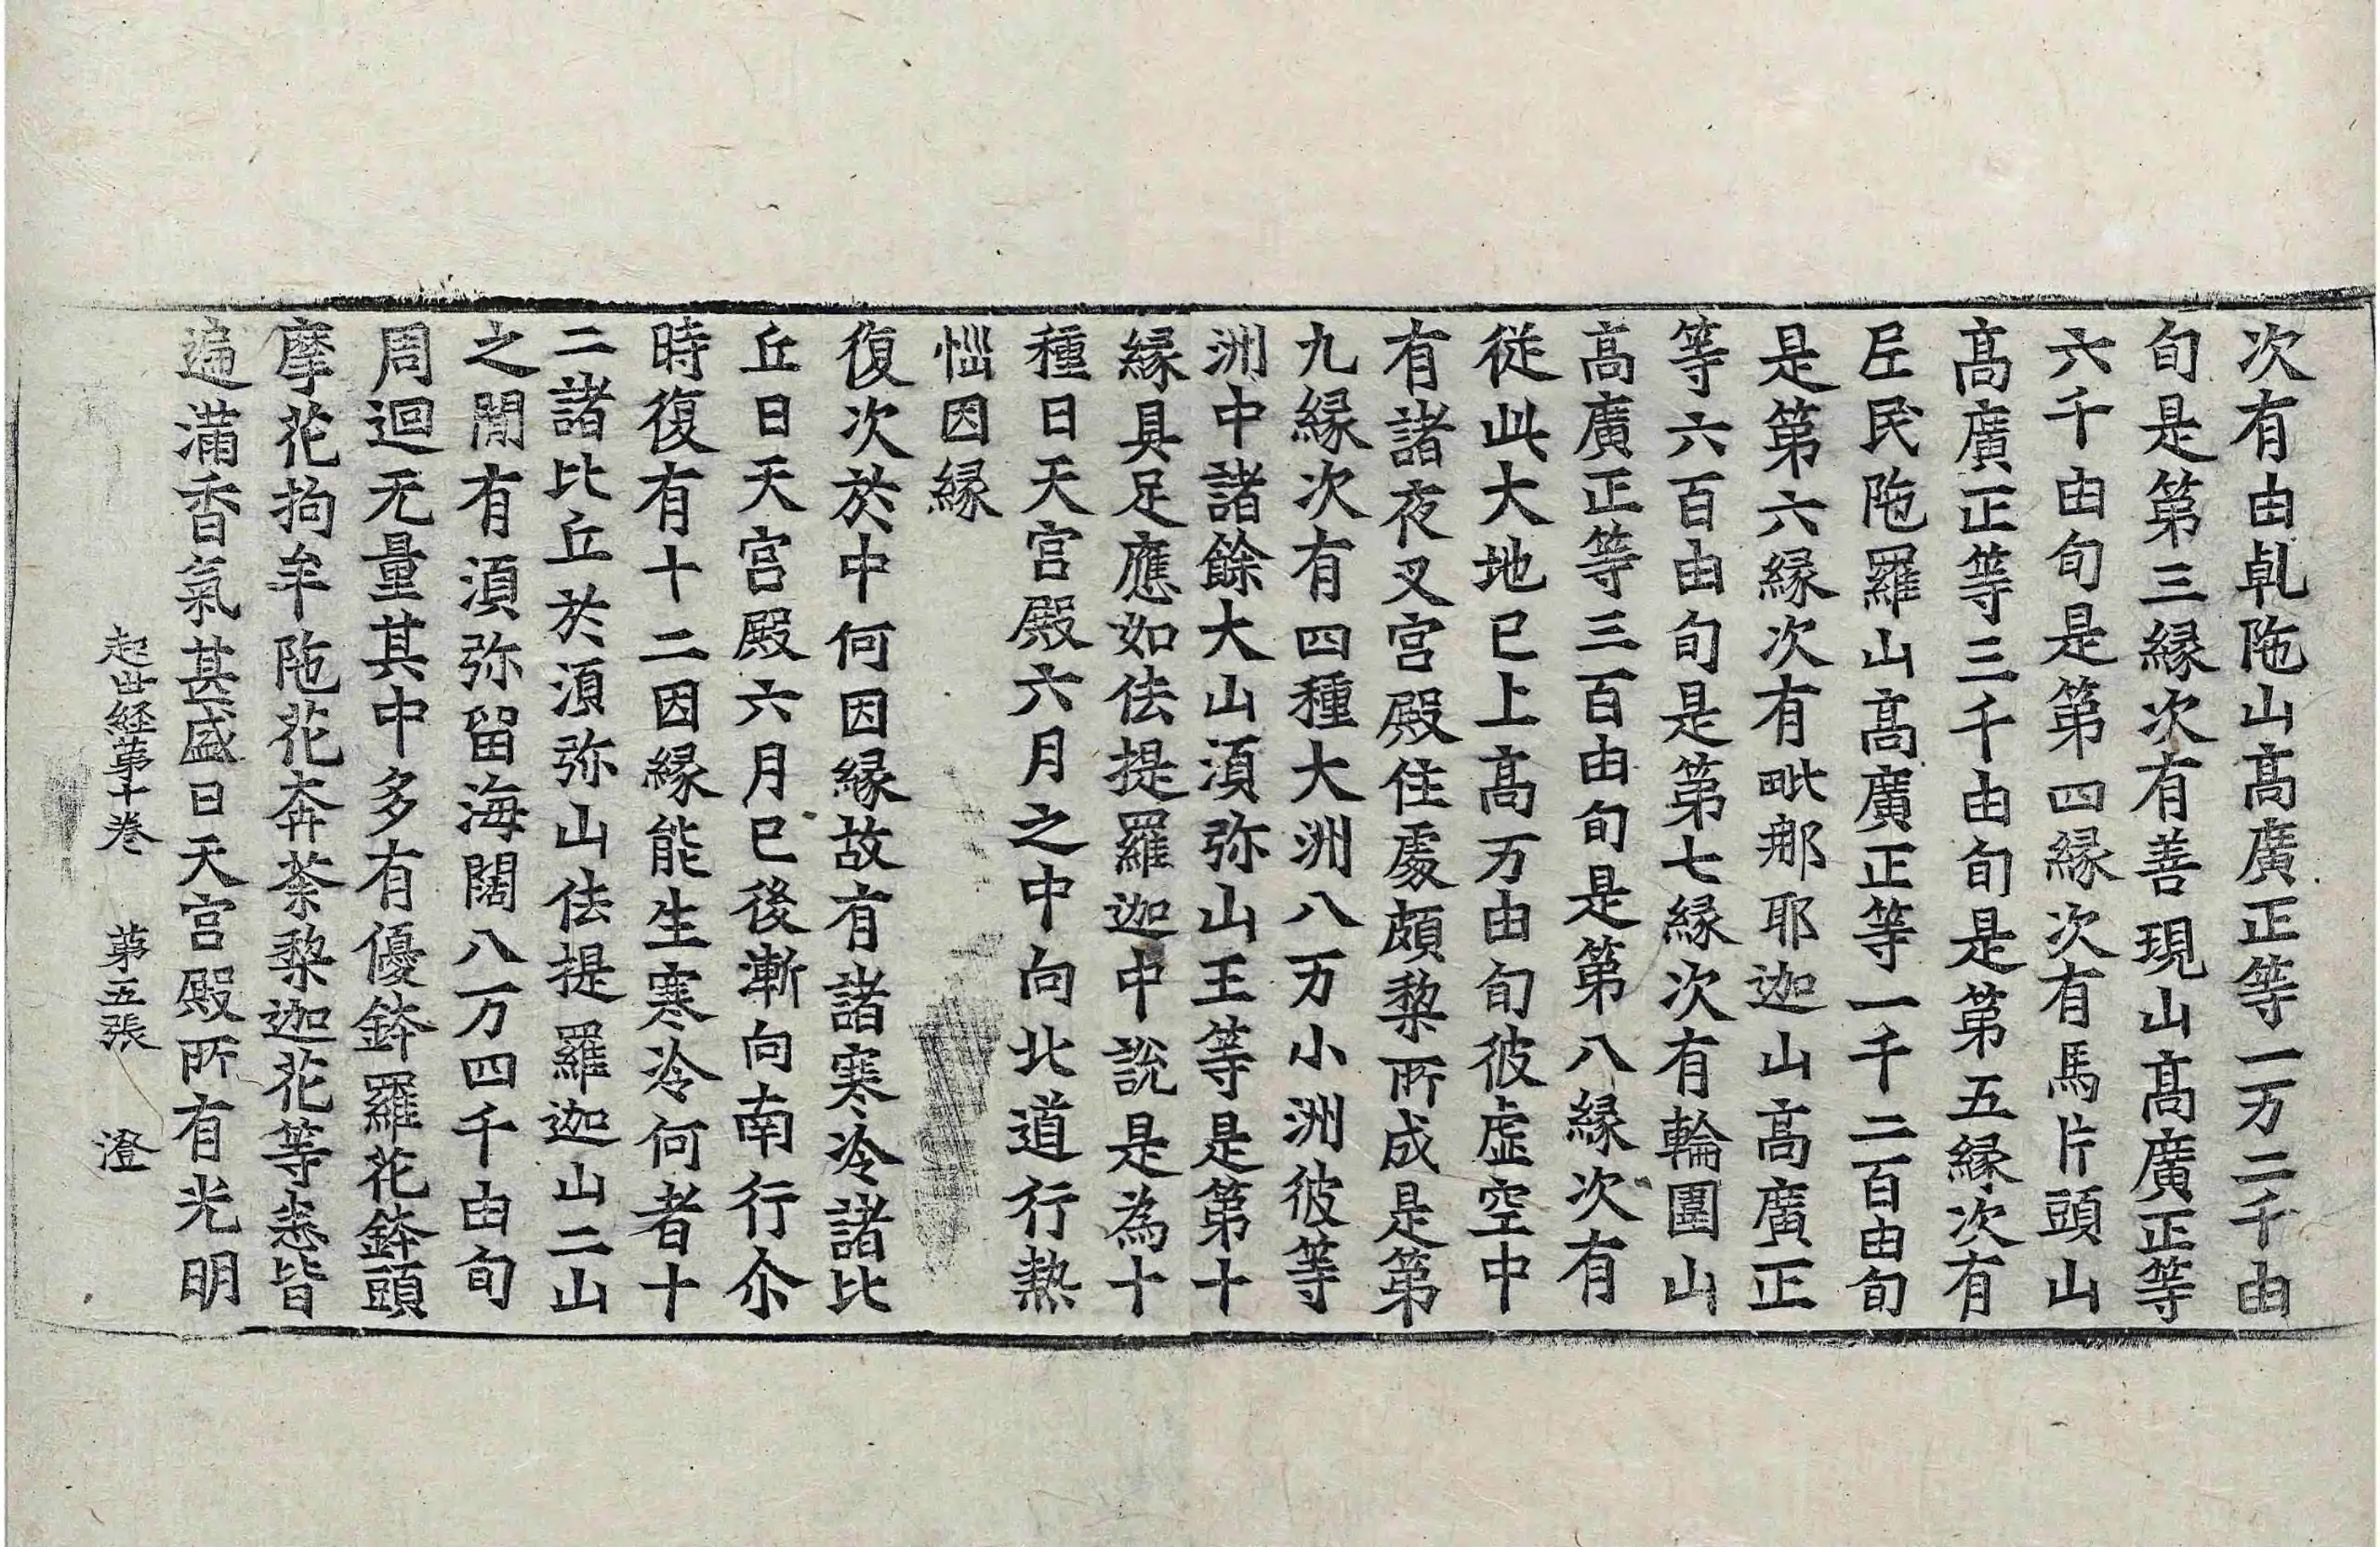 次有由乹陁山髙廣正等一万二千由
旬是第三縁次有善現山髙廣正等
六千由旬是第四縁次有馬片頭山
髙廣正等三千由旬是第五縁次有
𡰱民陁羅山髙廣正等一千二百由旬
是第六縁次有毗那耶迦山髙廣正
等六百由旬是第七縁次有輪圍山
髙廣正等三百由旬是第八縁次有
從此大地已上髙万由旬彼虚空中
有諸夜叉宫殿住處頗黎所成是第
九縁次有四種大洲八万小洲彼等
洲中諸餘大山湏弥山王等是第十
縁具足應如佉提羅迦中說是為十
種日天宫殿六月之中向北道行熱
惱因縁
復次於中何因縁故有諸寒冷諸比
丘日天宫殿六月已後漸向南行尒
時復有十二因縁能生寒冷何者十
二諸比丘於湏弥山佉提羅迦山二山
之閒有湏弥留海闊八万四千由旬
周迴无量其中多有優鉢羅花鉢頭
摩花拘牟陁花奔荼梨迦花等悉皆
遍滿香氣甚盛日天宫殿所有光明
起世経第十卷 第五張 澄